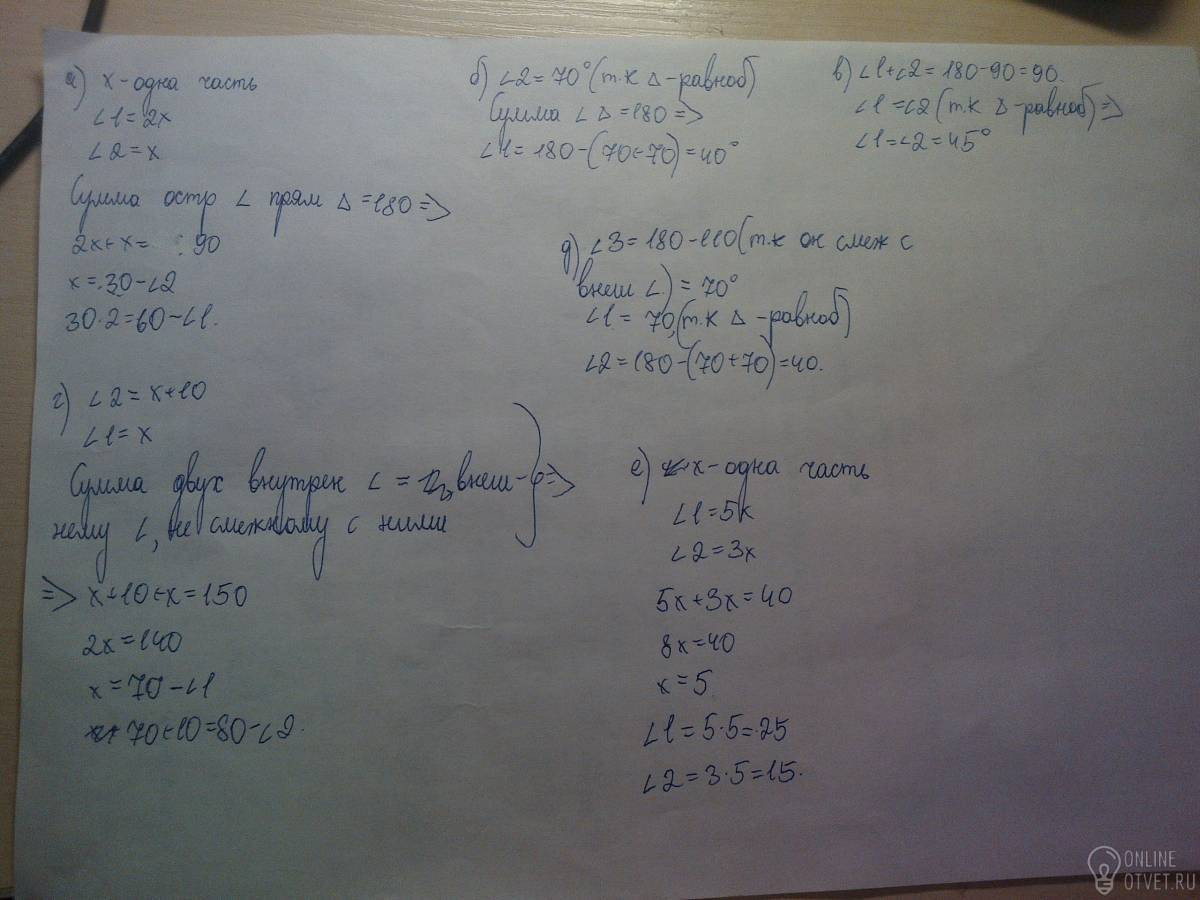 а) x-одна часть
∠1=2x
∠2=x
Сумма остр ∠ прям △=180=>
2x+x= 90
x=30-∠2
30·2=60-∠1.
б) ∠2=70°(т.к △-равноб)
Сумма ∠ △=180=>
∠1=180-(70+70)=40°
в) ∠1+∠2=180-90=90.
∠1=∠2(т.к △-равноб)=>
∠1=∠2=45°
д) ∠3=180-110(т.к он смеж с
внеш ∠)=70°
∠1=70,(т.к △-равноб)
∠2=180-(70+70)=40.
г) ∠2=x+10
∠1=x
Сумма двух внутрен ∠= внеш-
нему ∠, не смежному с ними
=>
=> x+10+x=150
2x=140
x=70-∠1
70+10=80-∠2.
е) x-одна часть
∠1=5x
∠2=3x
5x+3x=40
8x=40
x=5
∠1=5·5=25
∠2=3·5=15.
ONLINE
OTVET.RU